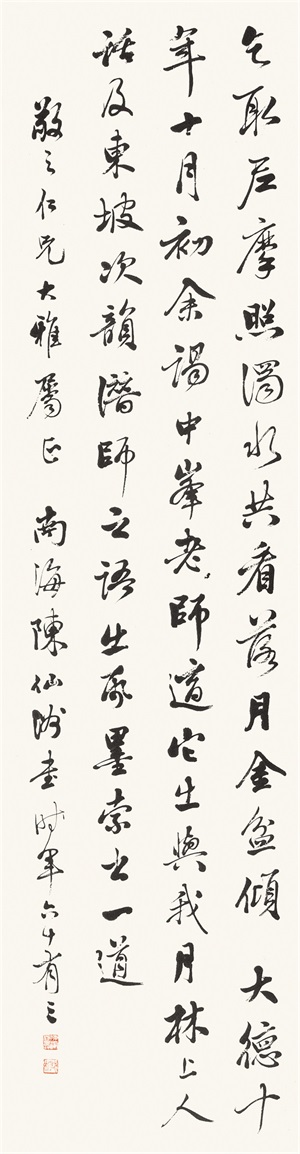 乞取尼摩照濁水共看落月金盆傾 大德十
年十月初余謁中峯老師適它出與我月林上人
話及東坡次韻潛師之語出紙墨索書一道
敬之仁兄大雅屬正 南海陳仙洲書時年六十有三